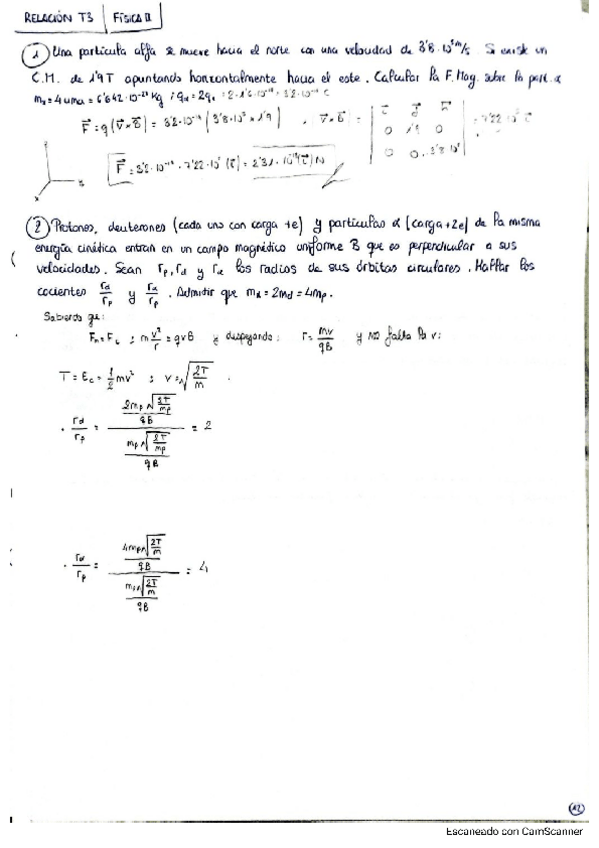 RELACIÓN T3 FÍSICA II
① Una partícula alfa se mueve hacia el norte con una velocidad de 3'8·10⁵ m/s. Si existe un
C.M. de 1'9 T apuntando horizontalmente hacia el este. Calcular la F. Mag. sobre la part. α
mα = 4 uma = 6'642·10⁻²⁷ kg ; qα = 2qe = 2·1'6·10⁻¹⁹ = 3'2·10⁻¹⁹ C
F = q(v×B) = 3'2·10⁻¹⁹ (3'8·10⁵ × 1'9) , v×B =
0 1'9 0
0 0 3'8·10⁵
= 7'22·10⁵
F = 3'2·10⁻¹⁹ · 7'22·10⁵ = 2'31·10⁻¹³ N
② Protones, deuterones (cada uno con carga +e) y partículas α [carga +2e] de la misma
energía cinética entran en un campo magnético uniforme B que es perpendicular a sus
velocidades. Sean rp, rd y rα los radios de sus órbitas circulares. Hallar los
cocientes rd/rp y rα/rp. Admitir que mα = 2md = 4mp.
Sabiendo que:
; m v²/r = qvB y despejando: r = mv/qB y nos falta la v:
T = Ec = 1/2 mv² ; v = √(2T/m) .
· rd/rp = (2mp √(2T/mp) / qB) / (mp √(2T/mp) / qB) = 2
· rα/rp = (4mp √(2T/m) / qB) / (mp √(2T/m) / qB) = 4
Escaneado con CamScanner